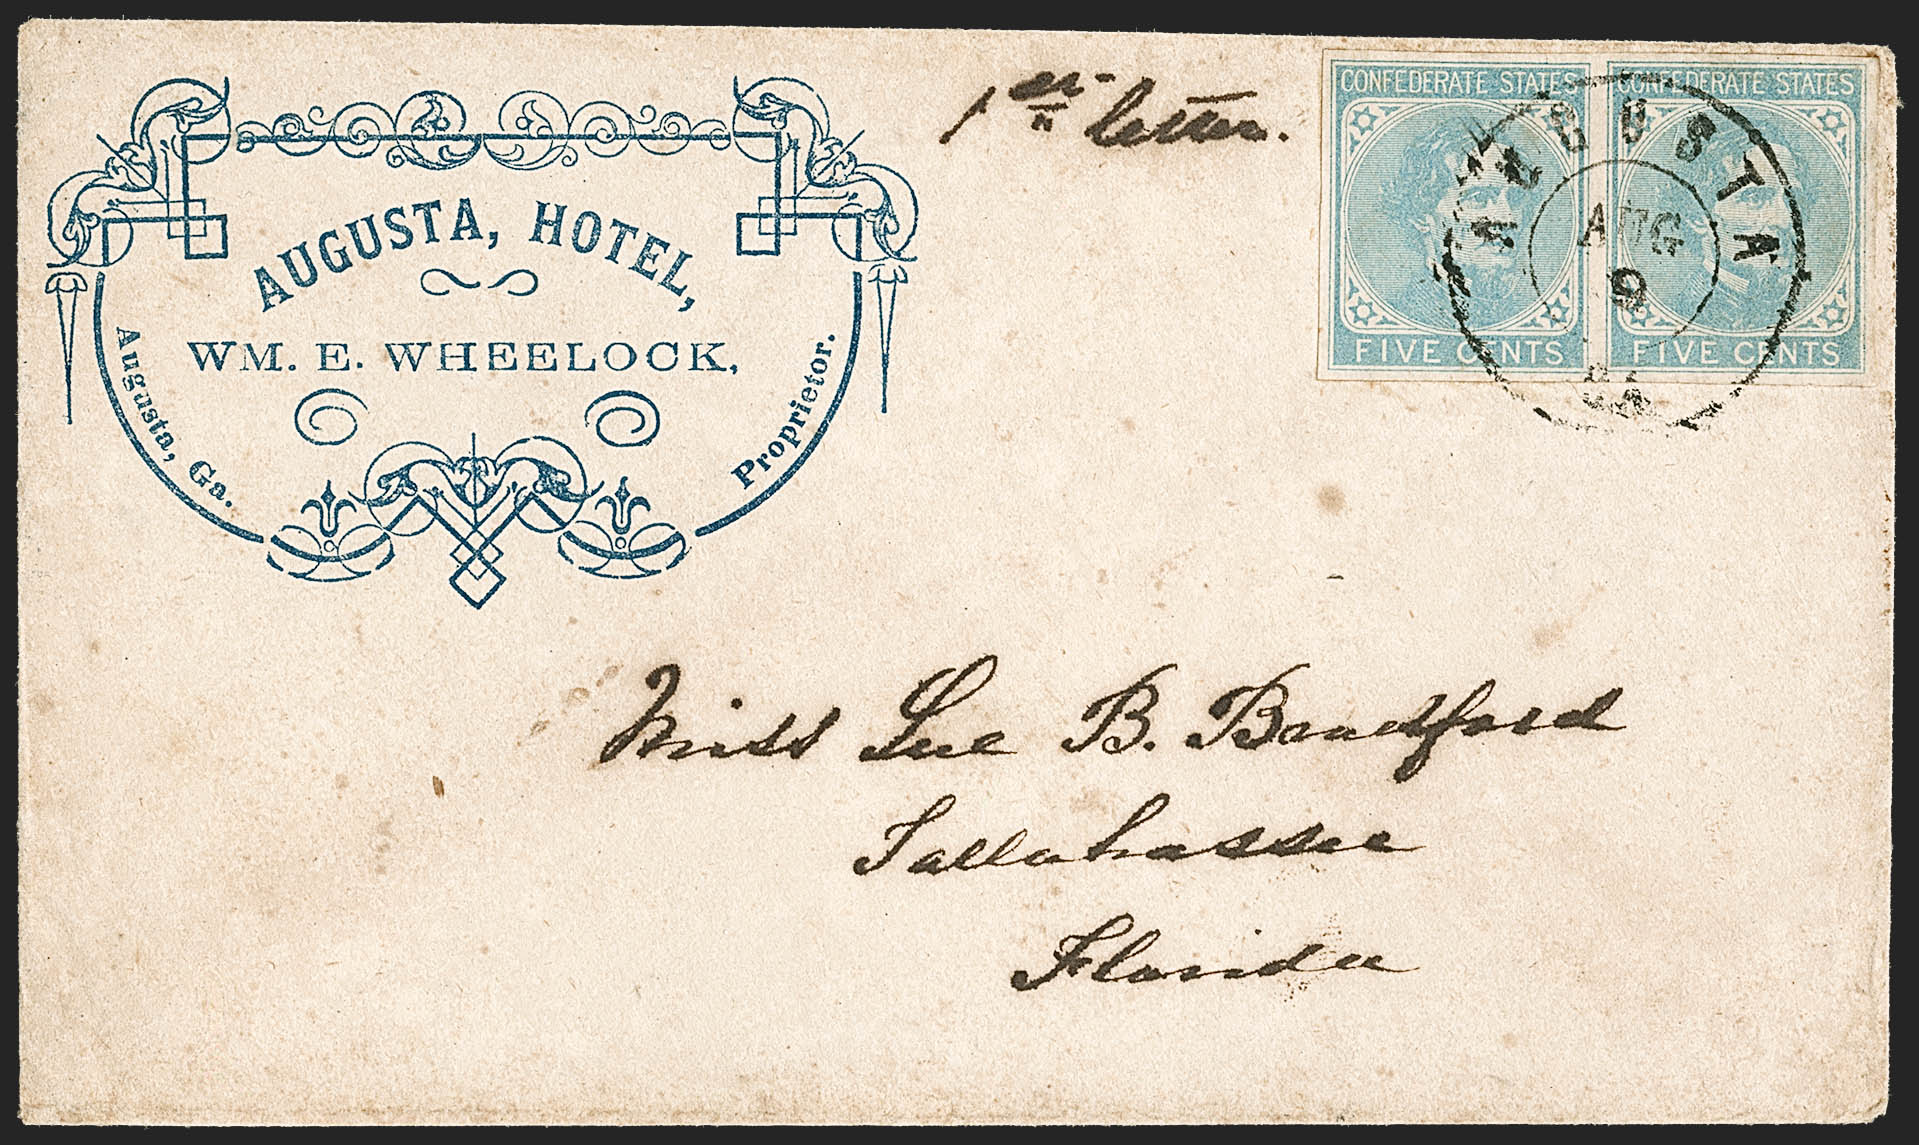 AUGUSTA, HOTEL,
WM. E. WHEELOCK,
Augusta, Ga.
Proprietor.
letter.
CONFEDERATE STATES
FIVE CENTS
CONFEDERATE STATES
FIVE CENTS
AUGUSTA
AUG
9
Miss Sue B. Bradford
Tallahassee
Florida